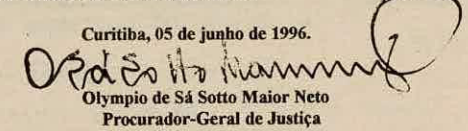 Curitiba, 05 de junho de 1996.
Olympio de Sá Sotto Maior Neto
Procurador-Geral de Justiça